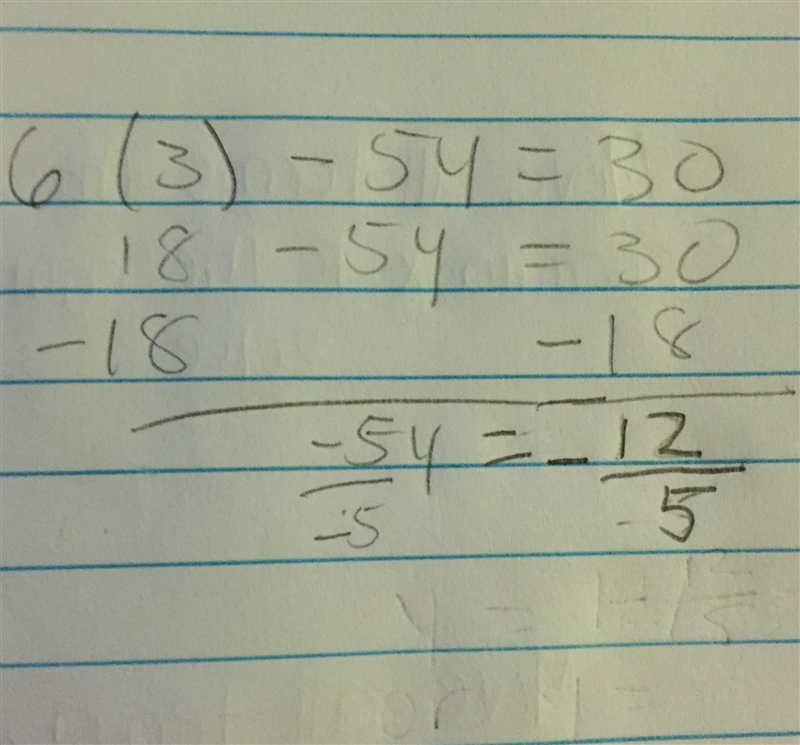 6 (3) - 5y = 30
18 - 5y = 30
-18 -18
-5y = - 12
-5 5
y =